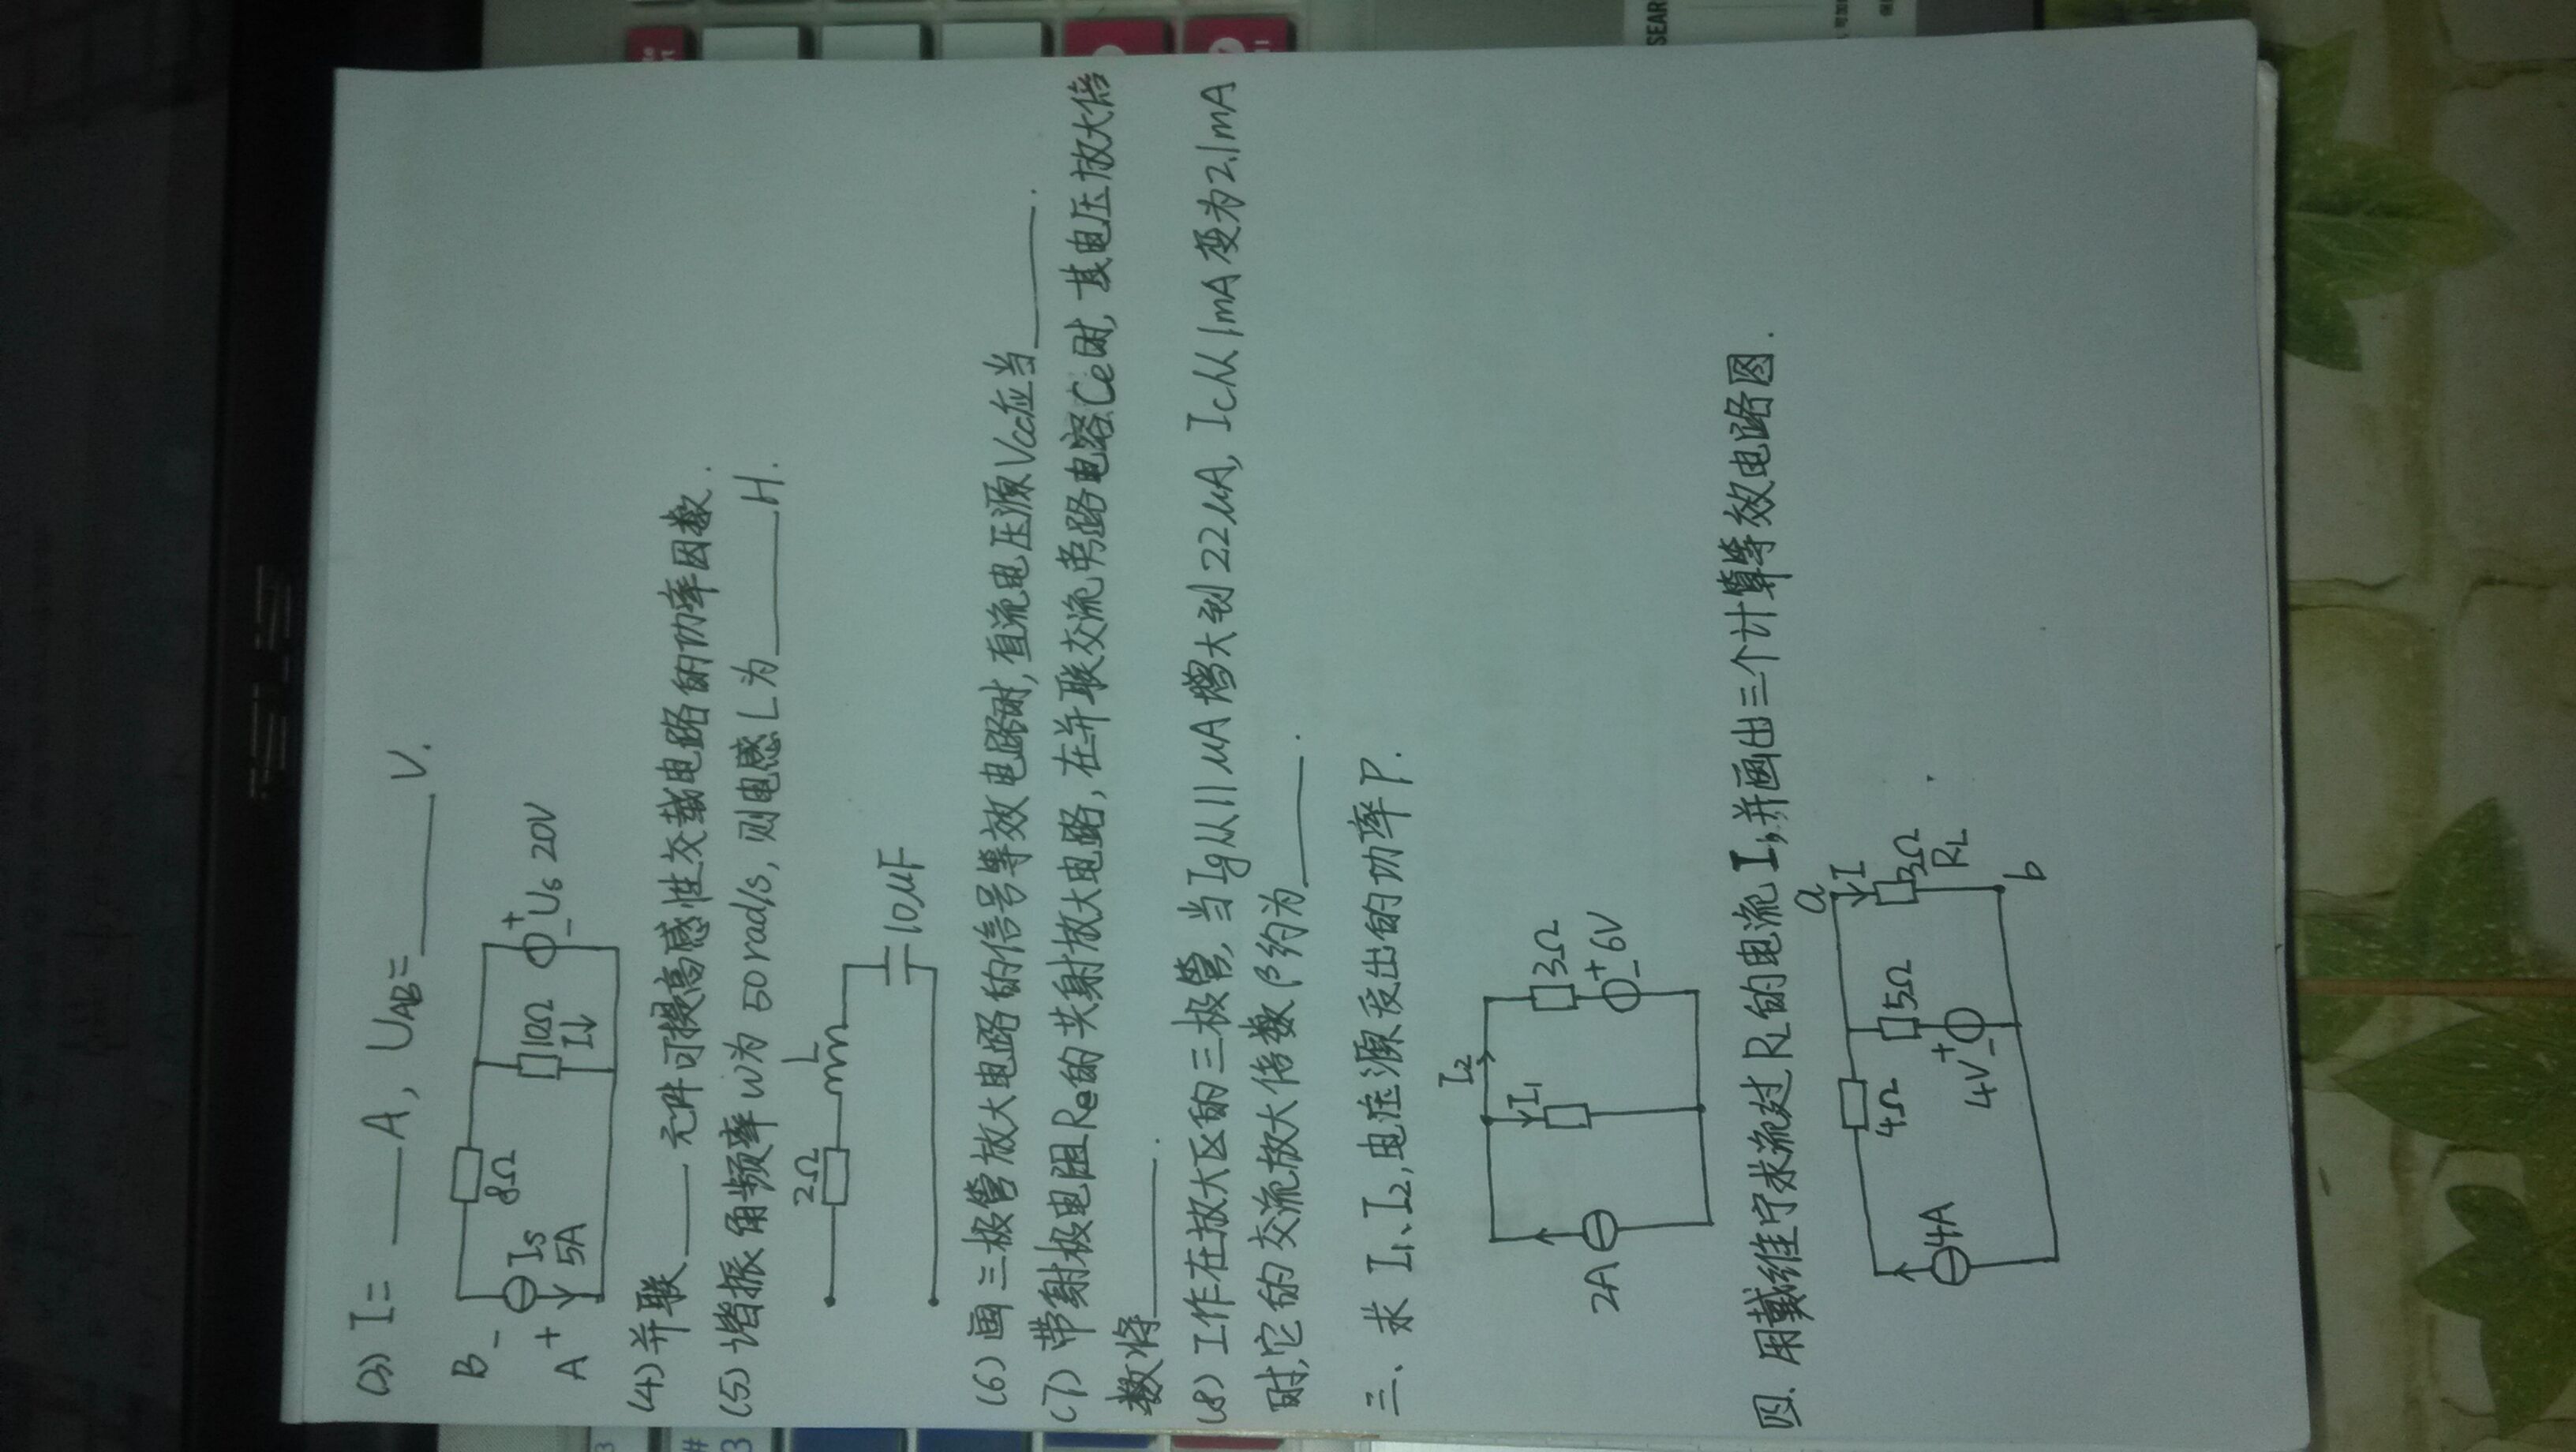 (3) I= ___ A, UAB= ______ V.
B -
A +
Is
5A
8Ω
10Ω
I↓
+
-
Us 20V
(4) 并联____元件可提高感性交载电路的功率因数.
(5) 谐振角频率W为50rad/s, 则电感L为______H.
2Ω
L
10μF
(6) 画三极管放大电路的信号等效电路时, 直流电压源Vcc应当______.
(7) 带射极电阻Re的共射放大电路, 在并联交流旁路电容Ce时, 其电压放大倍
数将______.
(8) 工作在放大区的三极管, 当Ig从11μA增大到22μA, Ic从1mA变为2.1mA
时, 它的交流放大倍数β约为______.
三、求I1、I2, 电压源发出的功率P.
I2
I1
2A
3Ω
+
-
6V
四. 用戴维宁求流过RL的电流I, 并画出三个计算等效电路图.
4A
4Ω
5Ω
4V
+
-
a
I
3Ω
RL
b
SEAR